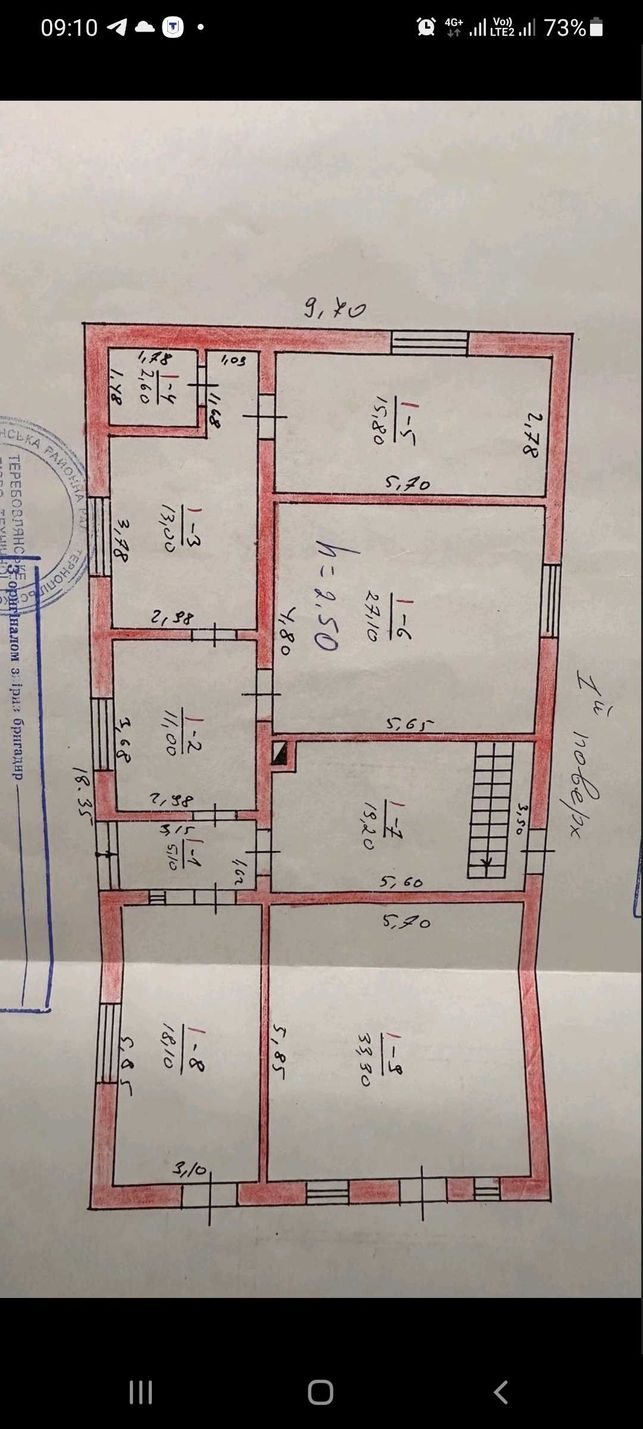 09:10
4G+
Vo))
LTE2
73%
9,70
1,78
1-4
2,60
1,48
1,09
1,68
1-5
15,80
2,78
5,70
1-3
13,00
3,78
2,98
1-6
27,10
h=2,50
4,80
5,65
1й поверх
1-2
11,00
3,68
2,98
18.35
1-7
19,20
3,50
5,60
1-1
5,10
3,15
1,62
5,70
1-8
18,10
5,85
3,10
1-9
33,30
5,85
ТЕРЕБОВЛЯНСЬКЕ
З оригіналом звірив бригадир